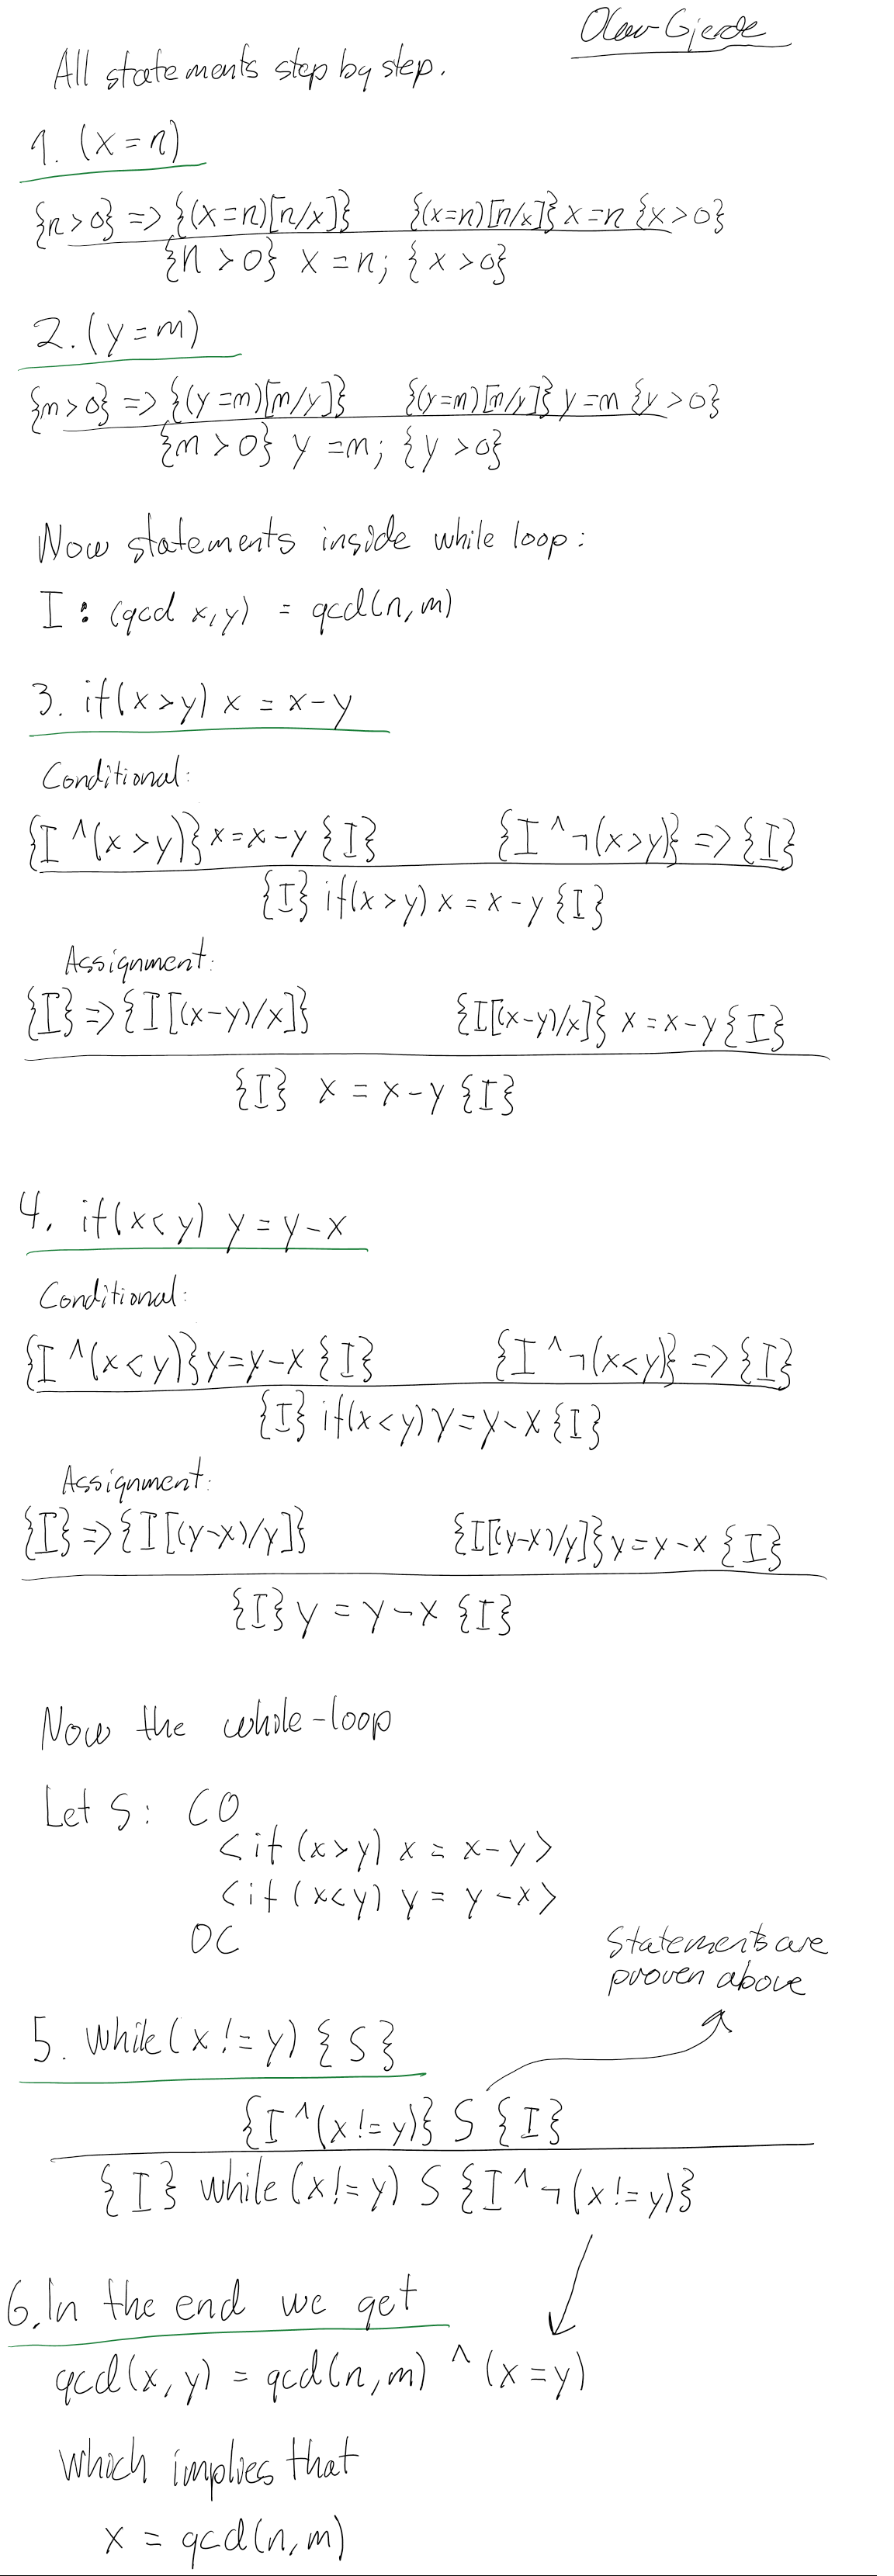 Olav Gjerde
All statements step by step.
1. (x = n)
{n > 0} => {(x=n)[n/x]} {(x=n)[n/x]} x = n {x > 0}
{n > 0} x = n; {x > 0}
2. (y = m)
{m > 0} => {(y=m)[m/y]} {(y=m)[m/y]} y = m {y > 0}
{m > 0} y = m; {y > 0}
Now statements inside while loop:
I : (gcd x, y) = gcd(n, m)
3. if(x > y) x = x - y
Conditional:
{I ^ (x > y)} x = x - y {I} {I ^ ¬(x > y)} => {I}
{I} if(x > y) x = x - y {I}
Assignment:
{I} => {I[(x-y)/x]} {I[(x-y)/x]} x = x - y {I}
{I} x = x - y {I}
4. if(x < y) y = y - x
Conditional:
{I ^ (x < y)} y = y - x {I} {I ^ ¬(x < y)} => {I}
{I} if(x < y) y = y - x {I}
Assignment:
{I} => {I[(y-x)/y]} {I[(y-x)/y]} y = y - x {I}
{I} y = y - x {I}
Now the whole-loop
Let S: CO
<if (x > y) x = x - y>
<if (x < y) y = y - x>
OC
Statements are
proven above
5. while(x != y) { S }
{I ^ (x != y)} S {I}
{I} while (x != y) S {I ^ ¬(x != y)}
6. In the end we get
gcd(x, y) = gcd(n, m) ^ (x = y)
which implies that
x = gcd(n, m)